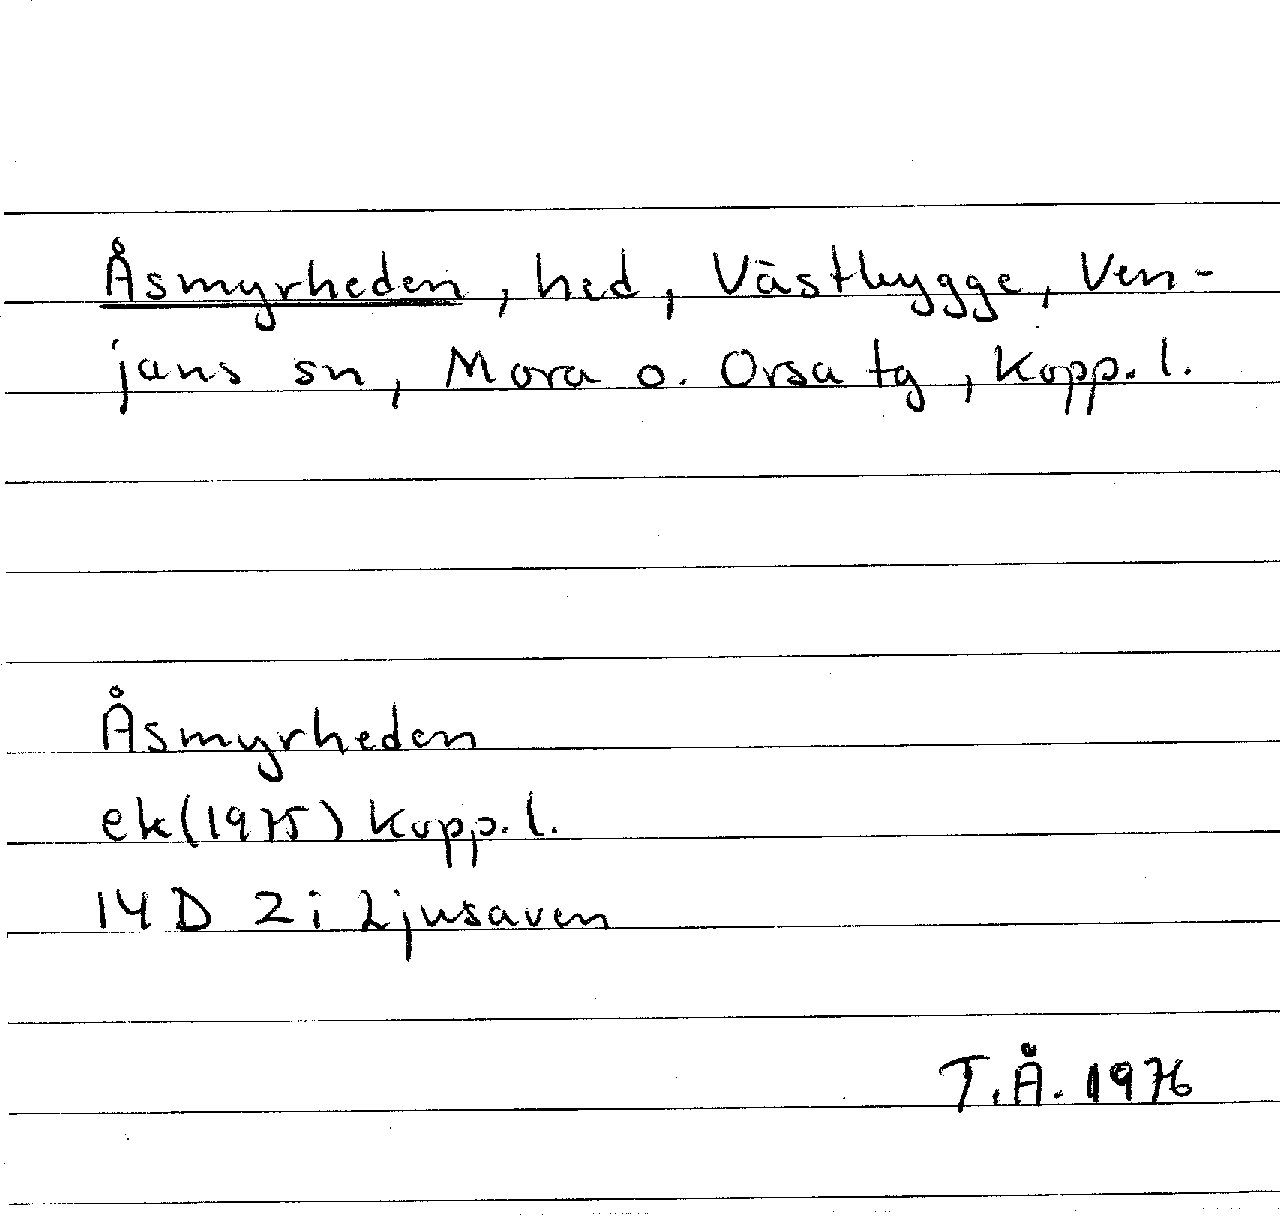 Åsmyrheden, hed, Västbygge, Ven-
jans sn, Mora o. Orsa tg, Kopp. l.
Åsmyrheden
ek (1975) Kopp. l.
14 D 2i Ljusaven
T.Å. 1976